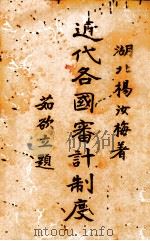 湖北楊汝梅著
近代各國審計制度
茹欲立題
www.mtoou.info